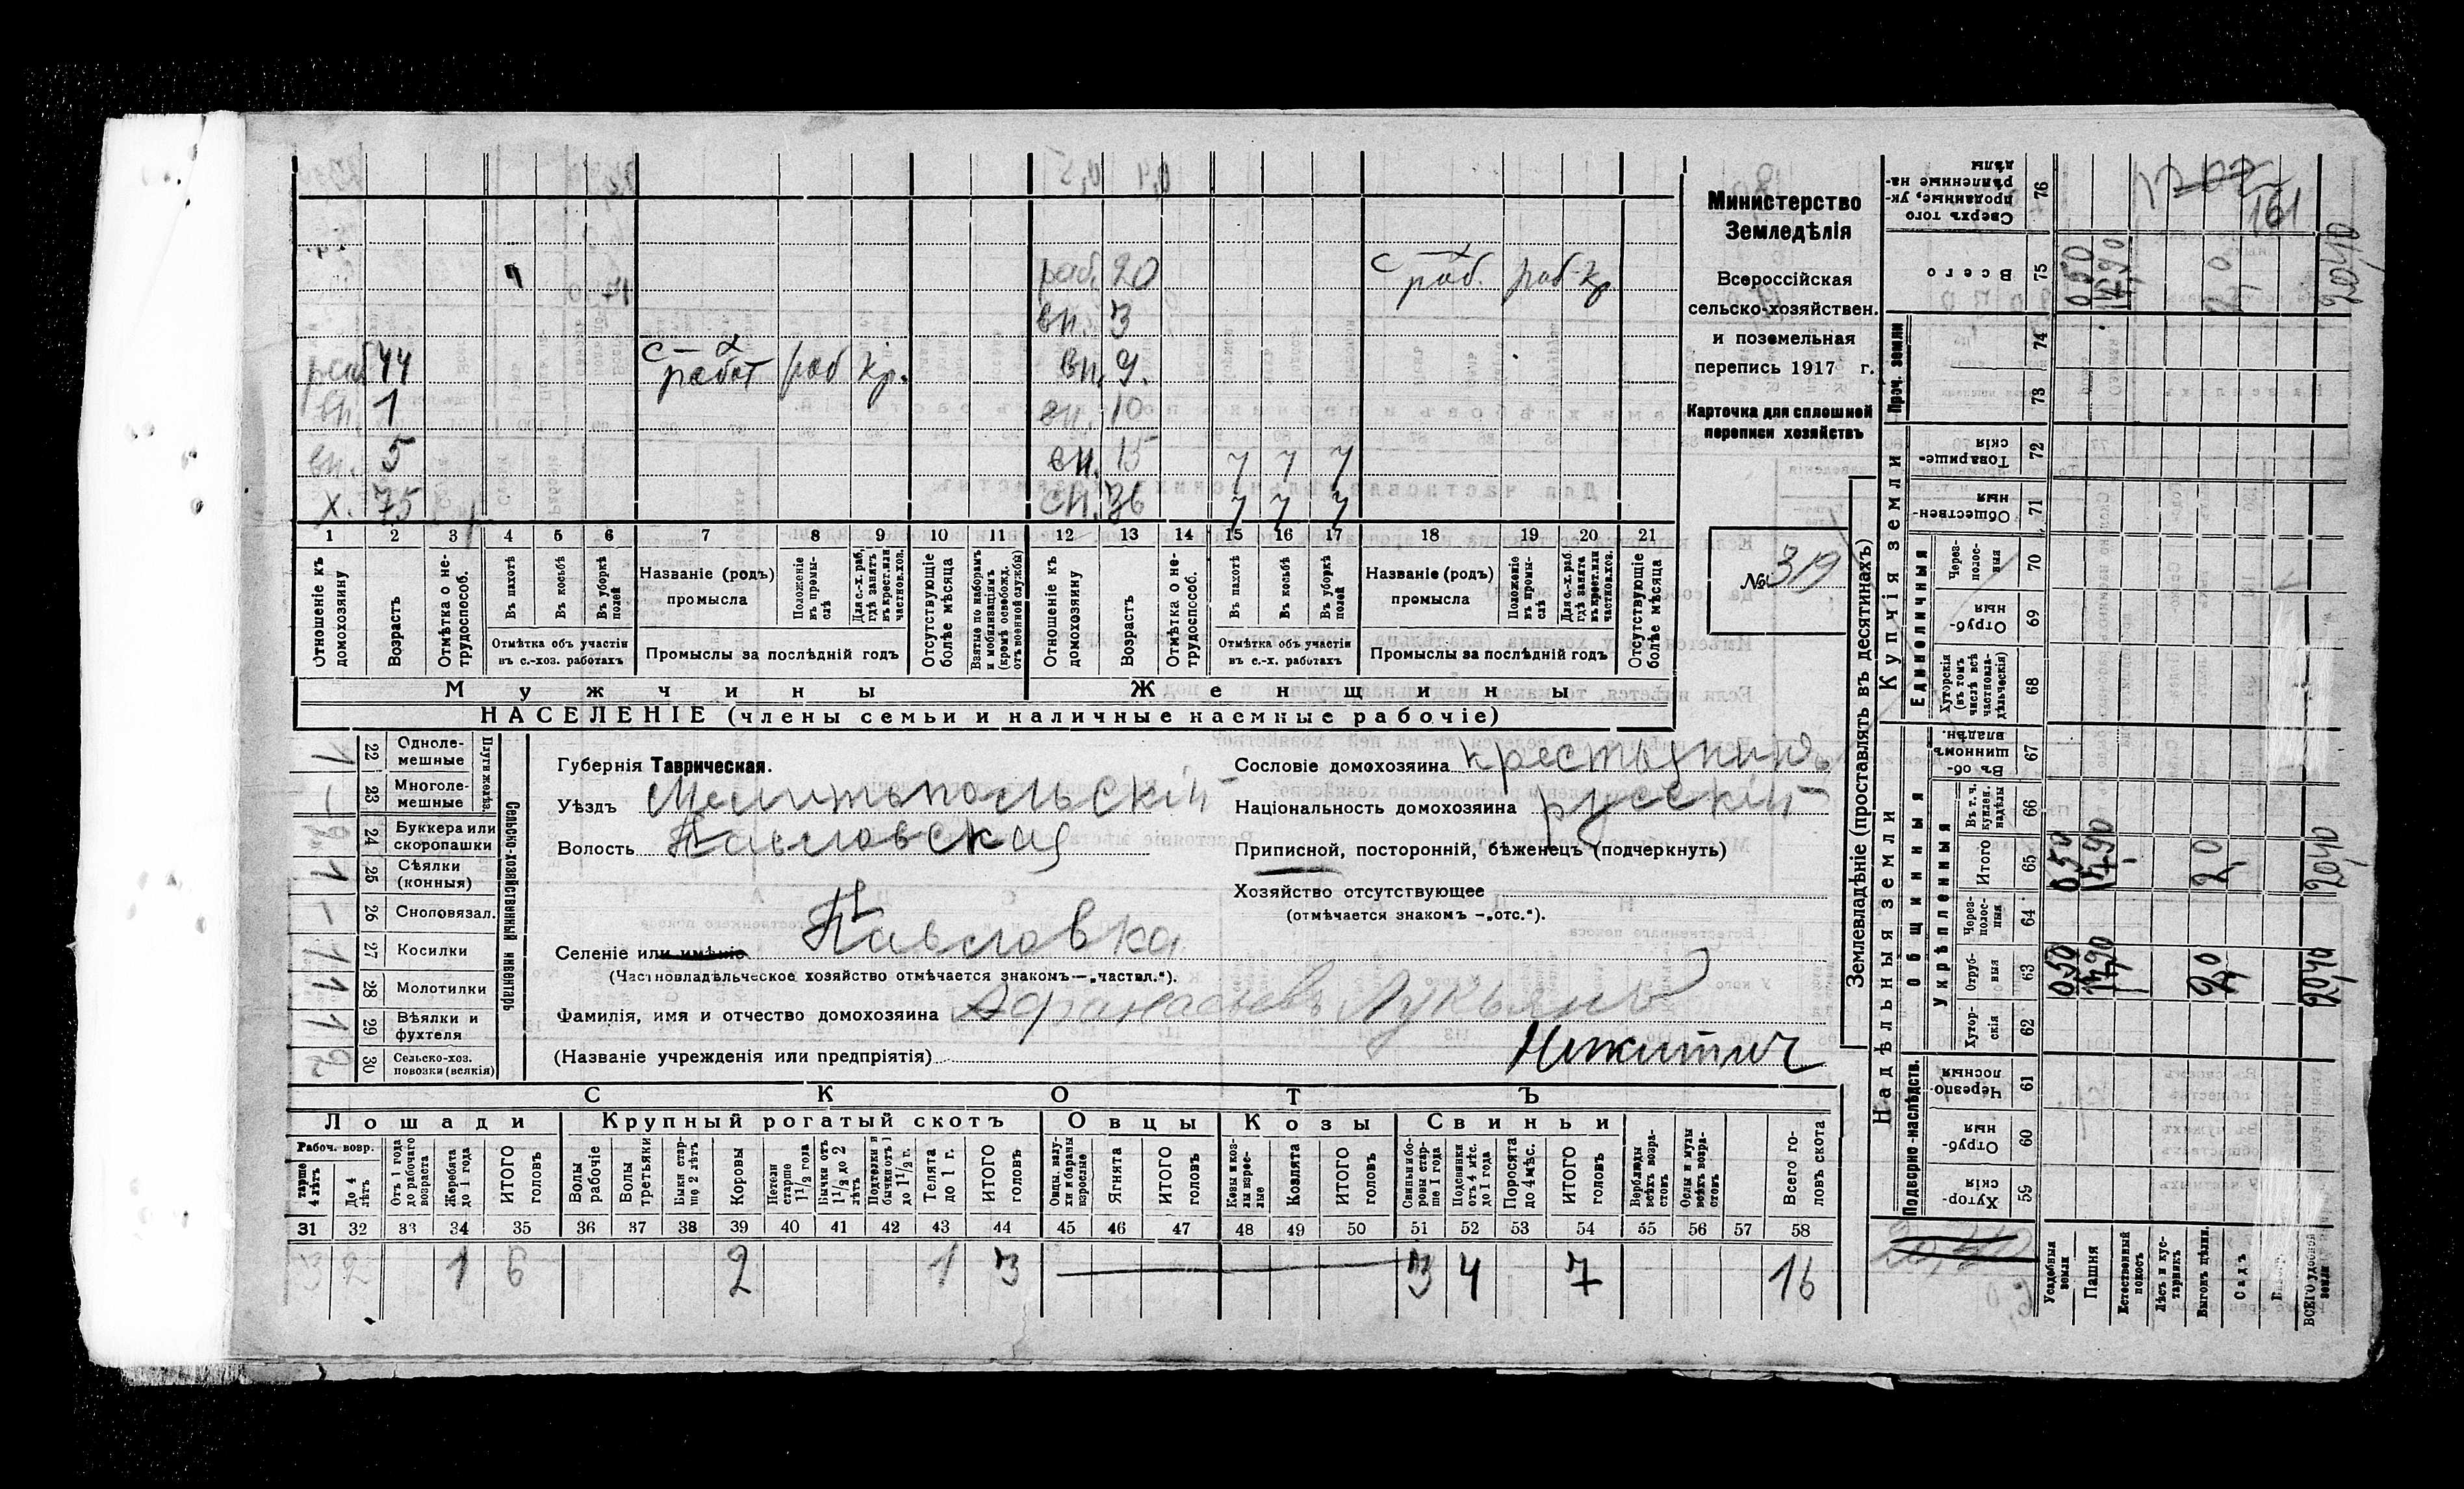 Министерство
Земледѣлія
Всероссійская
сельско-хозяйствен.
и поземельная
перепись 1917 г.
Карточка для сплошной
переписи хозяйствъ
№ 319
раб. 20
с-х раб. раб кр.
вн. 3
раб 44
с-х работ раб кр.
вн. 9.
вн. 1
вн. 10
вн. 5
вн. 15
х. 75
сн. 36
1 2 3 4 5 6 7 8 9 10 11 12 13 14 15 16 17 18 19 20 21
Отношеніе къ домохозяину
Возрастъ
Отмѣтка о не-трудоспособ.
Въ пахотѣ
Въ косьбѣ
Въ уборкѣ полей
Отмѣтка объ участіи въ с.-хоз. работахъ
Названіе (родъ) промысла
Положеніе въ промы-слѣ
Для с.-х. раб. гдѣ занятъ въ крест. или частнов. хоз.
Промыслы за послѣдній годъ
Отсутствующіе болѣе мѣсяца
Взятые по наборамъ и мобилизаціямъ (кромѣ освобожд. отъ военной службы)
Отношеніе къ домохозяину
Возрастъ
Отмѣтка о не-трудоспособ.
Въ пахотѣ
Въ косьбѣ
Въ уборкѣ полей
Отмѣтка объ участіи въ с.-х. работахъ
Названіе (родъ) промысла
Положеніе въ промы-слѣ
Для с.-х. раб. гдѣ занята въ крест. или частнов. хоз.
Промыслы за послѣдній годъ
Отсутствующіе болѣе мѣсяца
Мужчины
Женщины
НАСЕЛЕНІЕ (члены семьи и наличные наемные рабочіе)
Сельско-хозяйственный инвентарь
Плуги желѣз.
22 Одноле-мешные 1
23 Многоле-мешные
24 Буккера или скоропашки
25 Сѣялки (конныя) 1
26 Сноповязал. -
27 Косилки 1
28 Молотилки 1
29 Вѣялки и фухтеля 1
30 Сельско-хоз. повозки (всякія) 2
Губернія Таврическая.
Уѣздъ Мелитопольскій
Волость Павловская
Селеніе или имѣніе Павловка
(Частновладѣльческое хозяйство отмѣчается знакомъ—„частвл.“).
Фамилія, имя и отчество домохозяина Афанасьевъ Лукьянъ
(Названіе учрежденія или предпріятія) Никитич
Сословіе домохозяина крестьянинъ
Національность домохозяина русскій
Приписной, посторонній, бѣженецъ (подчеркнуть)
Хозяйство отсутствующее
(отмѣчается знакомъ —„отс.“).
СКОТЪ
Лошади
Крупный рогатый скотъ
Овцы
Козы
Свиньи
Рабоч. возр.
тарше 4 лѣтъ
До 4 лѣтъ
Отъ 1 года до рабочаго возраста
Жеребята до 1 года
ИТОГО головъ
Волы рабочіе
Волы третьяки
Быки стар-ше 2 лѣтъ
Коровы
Нетели старше 1 1/2 года
Бычки отъ 1 1/2 до 2 лѣтъ
Подтелки и бычки отъ 1 до 1 1/2 г.
Телята до 1 г.
ИТОГО головъ
Овцы, валу-хи и бараны взрослые
Ягнята
ИТОГО головъ
Козы и коз-лы взрос-лые
Козлята
ИТОГО головъ
Свиньи и бо-ровы стар-ше 1 года
Подсвинки отъ 4 мѣс. до 1 года
Поросята до 4 мѣс.
ИТОГО головъ
Верблюды всѣхъ возра-стовъ
Ослы и мулы всѣхъ возра-стовъ
Всего го-ловъ скота
31 32 33 34 35 36 37 38 39 40 41 42 43 44 45 46 47 48 49 50 51 52 53 54 55 56 57 58
3 2 1 6 2 1 3 3 4 7 16
Землевладѣніе (проставлять въ десятинахъ)
Надѣльныя земли
Купчія земли
Проч. земли
Подворно-наслѣдств.
Общинныя
Укрѣпленныя
Единоличныя
59 Хутор-скія
60 Отруб-ныя
61 Черезпо-лосныя
62 Хутор-скія
63 Отруб-ныя
64 Через-полос-ныя
65 Итого
66 Въ т. ч. куплен. надѣлы
67 Въ об-щинномъ владѣн.
68 Хуторскія (въ томъ числѣ всѣ частновла-дѣльческія)
69 Отруб-ныя
70 Через-полос-ныя
71 Обществен-ныя
72 Товарище-скія
73
74
75 Всего
76 Сверхъ того проданные, ук-рѣпленные на-дѣлы
Усадебныя земли
Пашня
Естественный покосъ
Лѣсъ и кус-тарникъ
Выгонъ цѣлин.
Садъ
ВСЕГО удобной земли
050 17,90 2,0 20,40
050 17,90 2,0 20,40
050 17,90 2,0 20,40
161